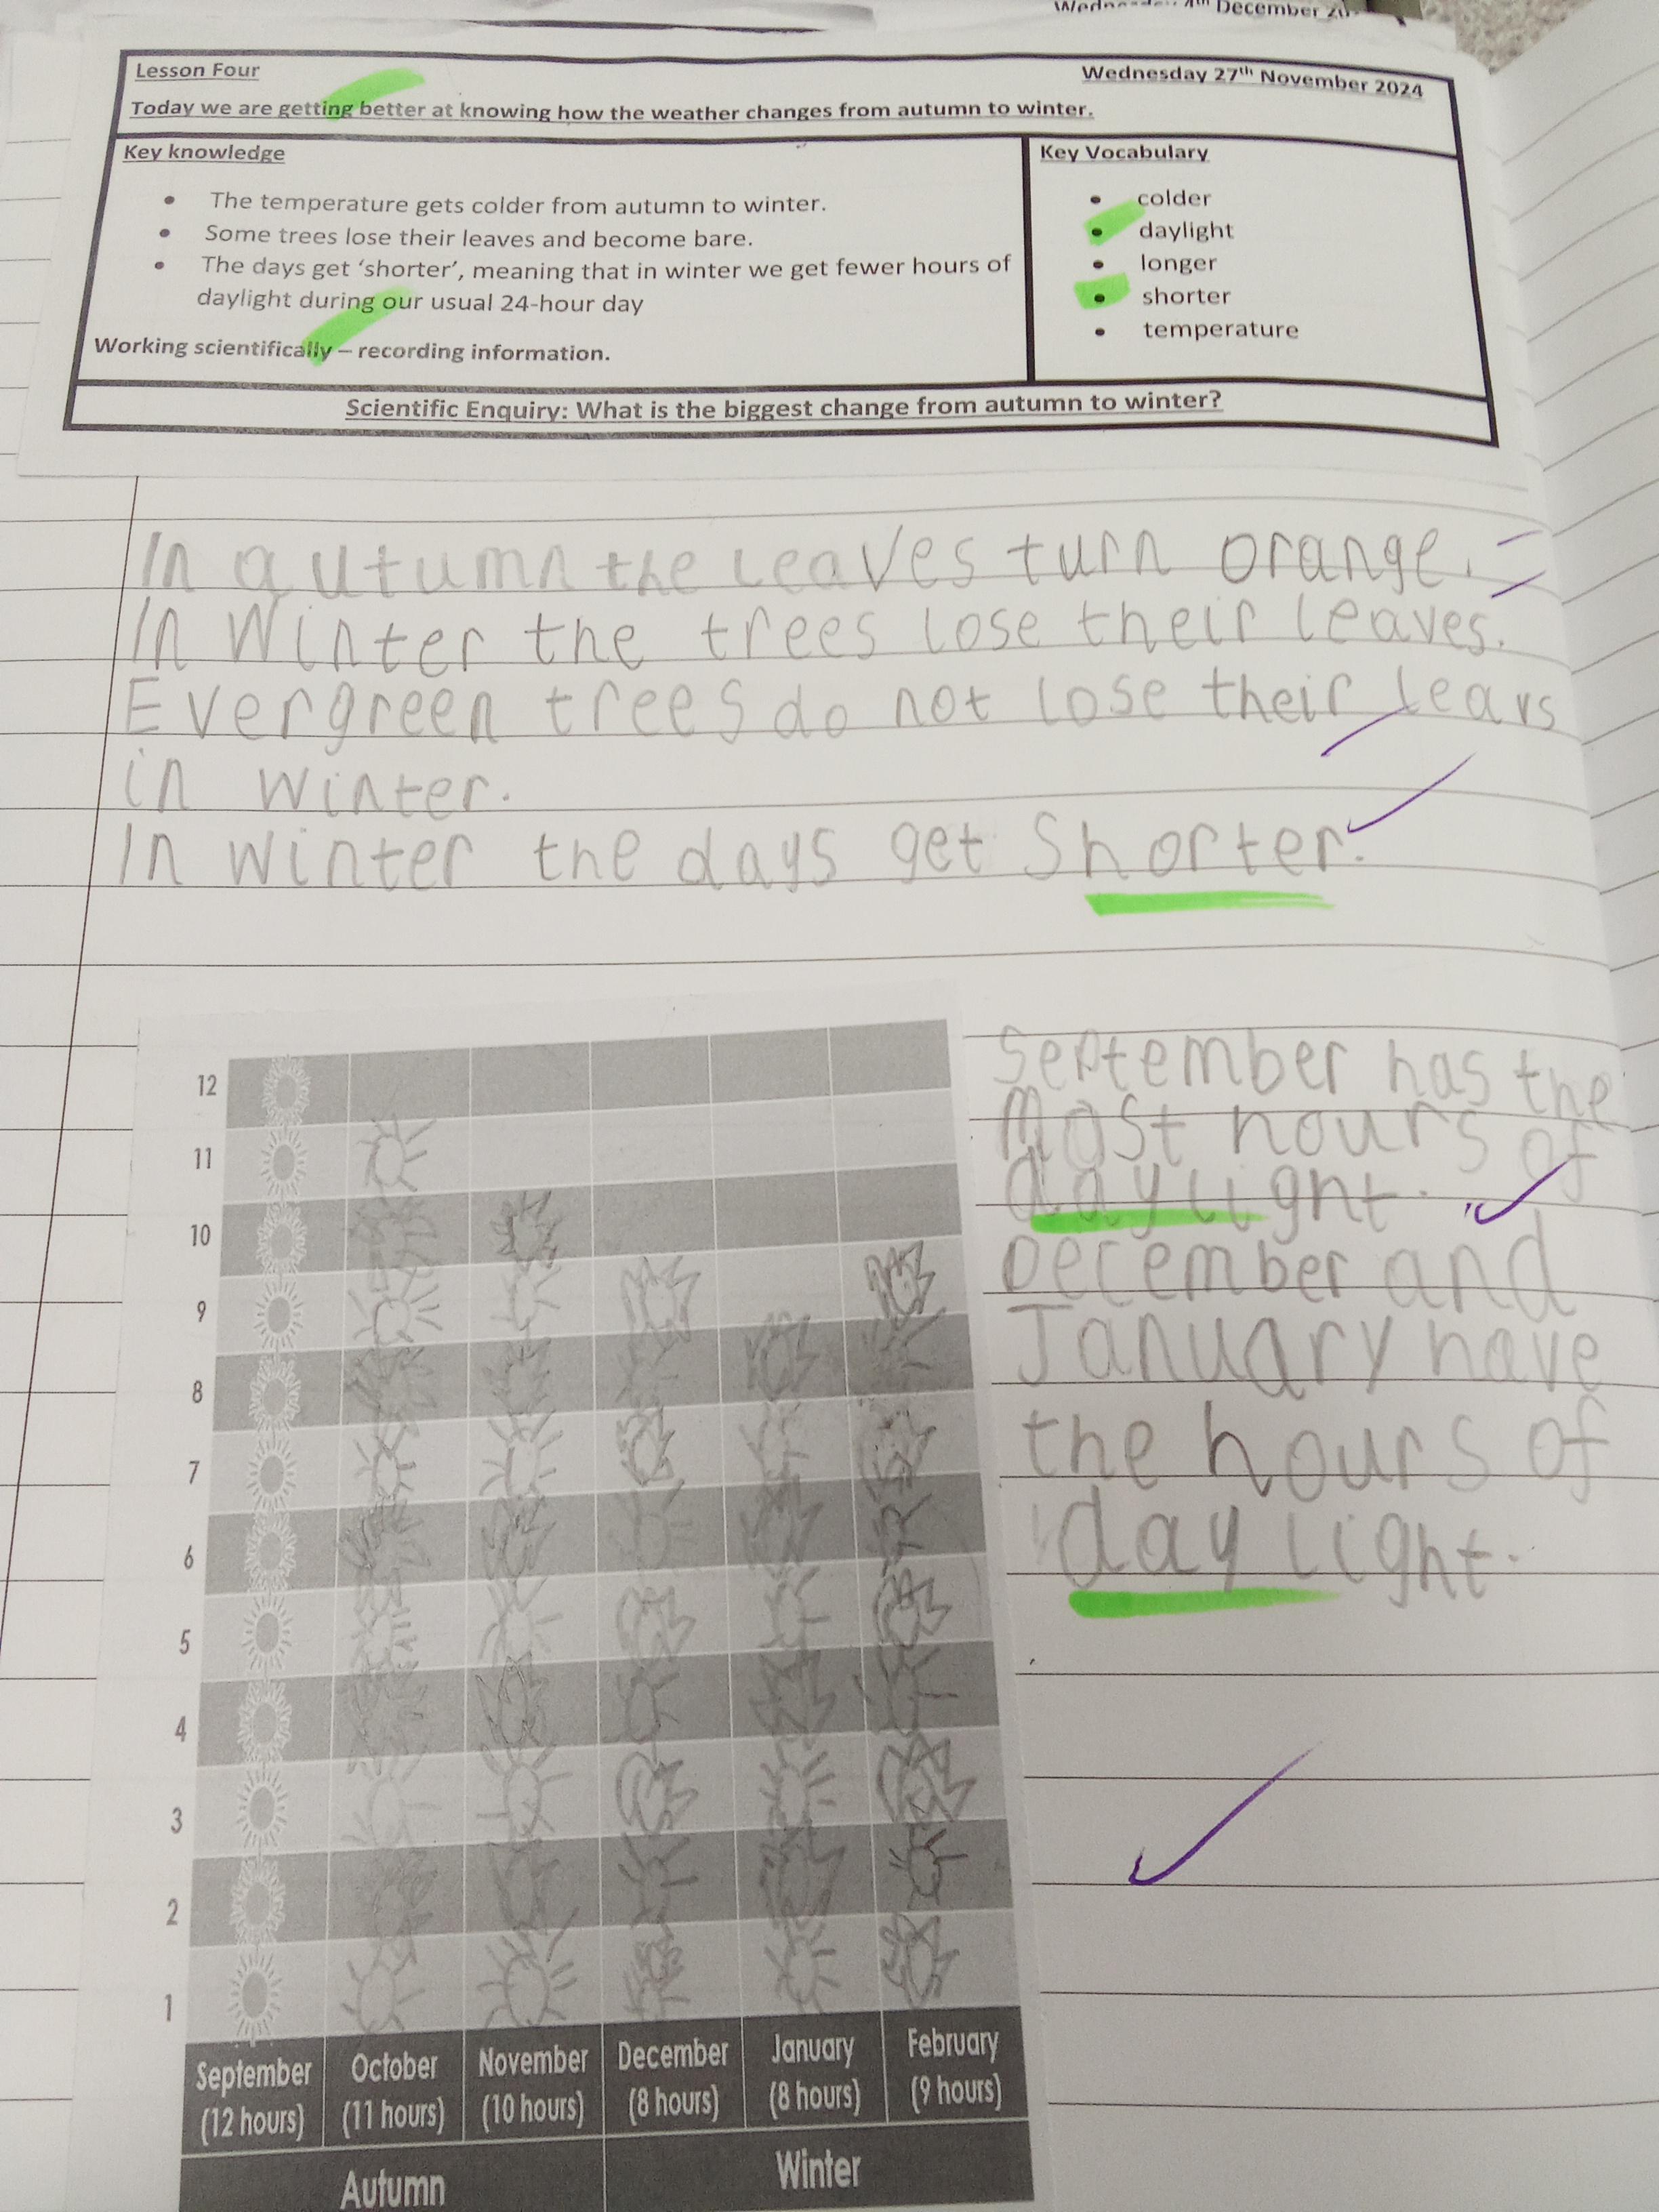 December 20
Lesson Four
Wednesday 27th November 2024
Today we are getting better at knowing how the weather changes from autumn to winter.
Key knowledge
• The temperature gets colder from autumn to winter.
• Some trees lose their leaves and become bare.
• The days get ‘shorter’, meaning that in winter we get fewer hours of
daylight during our usual 24-hour day
Working scientifically – recording information.
Key Vocabulary
• colder
• daylight
• longer
• shorter
• temperature
Scientific Enquiry: What is the biggest change from autumn to winter?
In autumn the leaves turn orange.
In Winter the trees lose their leaves.
Evergreen trees do not lose their leavs
in winter.
In winter the days get Shorter.
September has the
most hours of
daylight.
December and
January have
the hours of
daylight.
12
11
10
9
8
7
6
5
4
3
2
1
September October November December January February
(12 hours) (11 hours) (10 hours) (8 hours) (8 hours) (9 hours)
Autumn Winter